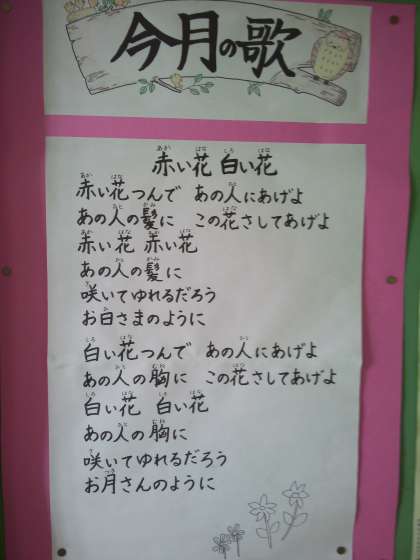 今月の歌
赤い花 白い花
赤い花つんで あの人にあげよ
あの人の髪に この花さしてあげよ
赤い花 赤い花
あの人の髪に
咲いてゆれるだろう
お日さまのように
白い花つんで あの人にあげよ
あの人の胸に この花さしてあげよ
白い花 白い花
あの人の胸に
咲いてゆれるだろう
お月さんのように